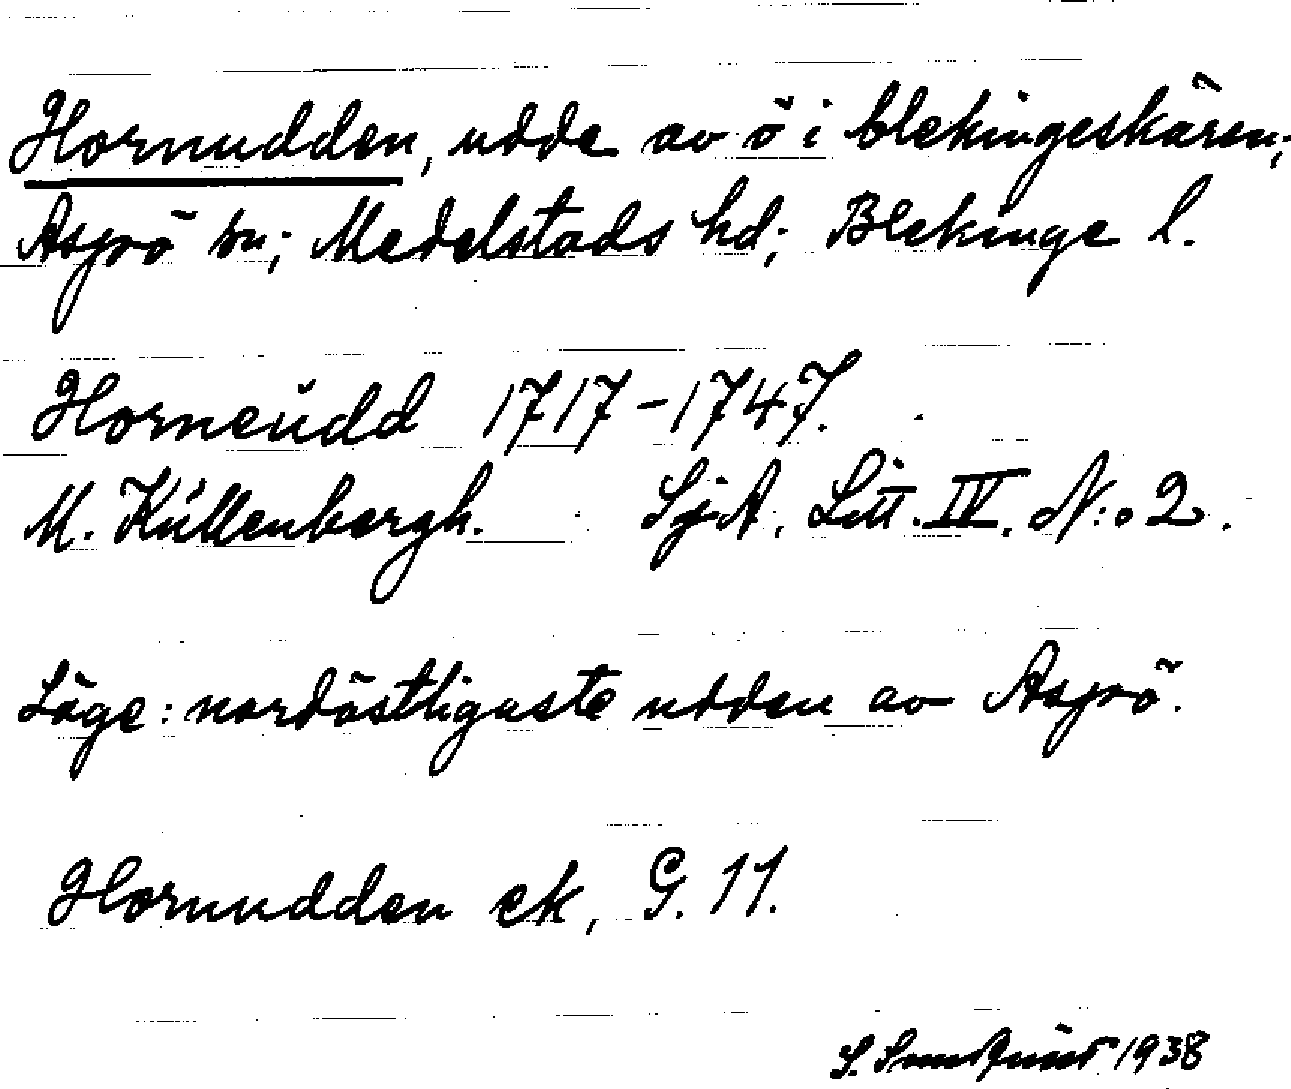 Hornudden, udde av ö i blekingeskären;
Aspö sn; Medelstads hd; Blekinge l.
Horneŭdd 1717-1747.
M. Kŭllenbergh. SjA. Litt. IV. N:o 2.
Läge: nordöstligaste udden av Aspö.
Hornudden ek, G. 11.
S. 1938